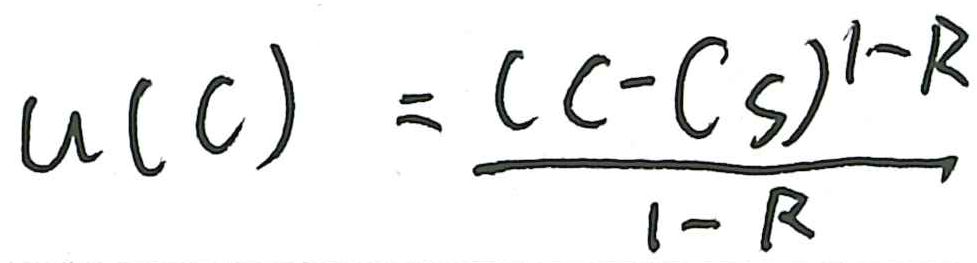 u(c) = \frac{(c-c_s)^{1-R}}{1-R}